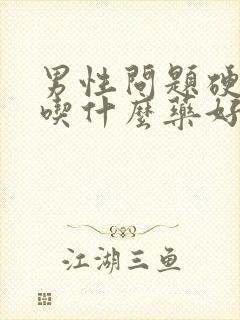 男性問題硬
喫什麼藥好
江湖三鱼